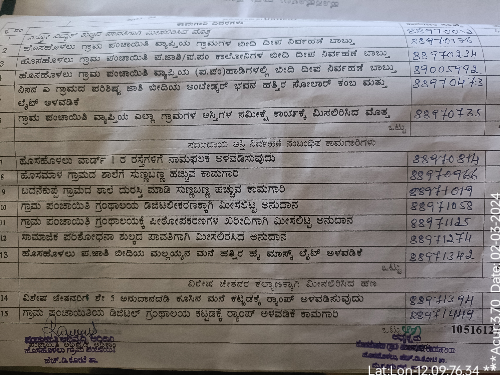 ಕಾಮಗಾರಿ ವಿವರಗಳು
2 ಹೊಸಹೊಳಲು ಗ್ರಾಮ ಪಂಚಾಯಿತಿ ವ್ಯಾಪ್ತಿಯ ಗ್ರಾಮಗಳ ಬೀದಿ ದೀಪ ನಿರ್ವಹಣೆ ಬಾಬ್ತು
3 ಹೊಸಹೊಳಲು ಗ್ರಾಮ ಪಂಚಾಯಿತಿ ಪ.ಜಾತಿ/ಪ.ಪಂ ಕಾಲೋನಿಗಳ ಬೀದಿ ದೀಪ ನಿರ್ವಹಣೆ ಬಾಬ್ತು 88970334
4 ಹೊಸಹೊಳಲು ಗ್ರಾಮ ಪಂಚಾಯಿತಿ ವ್ಯಾಪ್ತಿಯ (ಪ.ಪಂ)ಹಾಡಿಗಳಲ್ಲಿ ಬೀದಿ ದೀಪ ನಿರ್ವಹಣೆ ಬಾಬ್ತು 89005492
ಗ್ರಾಮದ ಪರಿಶಿಷ್ಟ ಜಾತಿ ಬೀದಿಯ ಅಂಬೇಡ್ಕರ್ ಭವನ ಹತ್ತಿರ ಸೋಲಾರ್ ಕಂಬ ಮತ್ತು 88970473
ಲೈಟ್ ಅಳವಡಿಕೆ
ಗ್ರಾಮ ಪಂಚಾಯಿತಿ ವ್ಯಾಪ್ತಿಯ ಎಲ್ಲಾ ಗ್ರಾಮಗಳ ಆಸ್ತಿಗಳ ಸಮೀಕ್ಷೆ ಕಾರ್ಯಕ್ಕೆ ಮೀಸಲಿರಿಸಿದ ಮೊತ್ತ 88970735
ಒಟ್ಟು
ಸಮುದಾಯ ಆಸ್ತಿ ನಿರ್ವಹಣೆ ಸಂಬಂಧಿತ ಕಾಮಗಾರಿಗಳು
ಹೊಸಹೊಳಲು ವಾರ್ಡ್ 1 ರ ರಸ್ತೆಗಳಿಗೆ ನಾಮಫಲಕ ಅಳವಡಿಸುವುದು 88970814
8 ಹೊಸಮಾಳ ಗ್ರಾಮದ ಶಾಲೆಗೆ ಸುಣ್ಣಬಣ್ಣ ಹಚ್ಚುವ ಕಾಮಗಾರಿ 88970966
9 ಗ್ರಾಮದ ಶಾಲೆ ದುರಸಿ ಮಾಡಿ ಸುಣ್ಣಬಣ್ಣ ಹಚ್ಚುವ ಕಾಮಗಾರಿ 88971019
10 ಗ್ರಾಮ ಪಂಚಾಯಿತಿ ಗ್ರಂಥಾಲಯ ಡಿಜಿಟಲೀಕರಣಕ್ಕಾಗಿ ಮೀಸಲಿಟ್ಟ ಅನುದಾನ 88971058
11 ಗ್ರಾಮ ಪಂಚಾಯಿತಿ ಗ್ರಂಥಾಲಯಕ್ಕೆ ಪೀಠೋಪಕರಣಗಳ ಖರೀದಿಗಾಗಿ ಮೀಸಲಿಟ್ಟ ಅನುದಾನ 88971125
12 ಸಾಮಾಜಿಕ ಪರಿಶೋಧನಾ ಶುಲ್ಕದ ಪಾವತಿಗಾಗಿ ಮೀಸಲಿರಿಸಿದ ಅನುದಾನ 88971274
13 ಹೊಸಹೊಳಲು ಪ.ಜಾತಿ ಬೀದಿಯ ಮಲ್ಲಯ್ಯನ ಮನೆ ಹತ್ತಿರ ಹೈ ಮಾಸ್ಕ್ ಲೈಟ್ ಅಳವಡಿಕೆ 88971342
ಒಟ್ಟು
ವಿಶೇಷ ಚೇತನರ ಕಲ್ಯಾಣಕ್ಕಾಗಿ ಮೀಸಲಿರಿಸಿದ ಹಣ
14 ವಿಶೇಷ ಚೇತನರಿಗೆ ಶೇ 5 ಅನುದಾನದಡಿ ಕೂಸಿನ ಮನೆ ಕಟ್ಟಡಕ್ಕೆ ರ್‍ಯಾಂಪ್ ಅಳವಡಿಸುವುದು 88971394
15 ಗ್ರಾಮ ಪಂಚಾಯಿತಿಯ ಡಿಜಿಟಲ್ ಗ್ರಂಥಾಲಯ ಕಟ್ಟಡಕ್ಕೆ ರ್‍ಯಾಂಪ್ ಅಳವಡಿಕೆ ಕಾಮಗಾರಿ
ಒಟ್ಟು 1051612
ಹೊಸಹೊಳಲು ಗ್ರಾಮ ಪಂಚಾಯಿತಿ
ಹೆಚ್.ಡಿ.ಕೋಟೆ ತಾ.
ಅಧ್ಯಕ್ಷರು
ಹೆಚ್.ಡಿ.ಕೋಟೆ ತಾ.
Lat Lon 12.09,76.34 *** Accu:370 Date: 02-03-2024